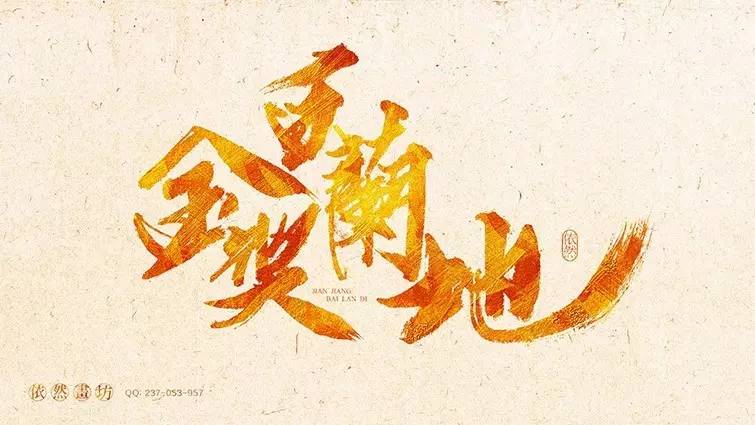 金奖
百蘭地
JIAN JIANG
BAI LAN DI
依然
依然畫坊 QQ: 237-053-957